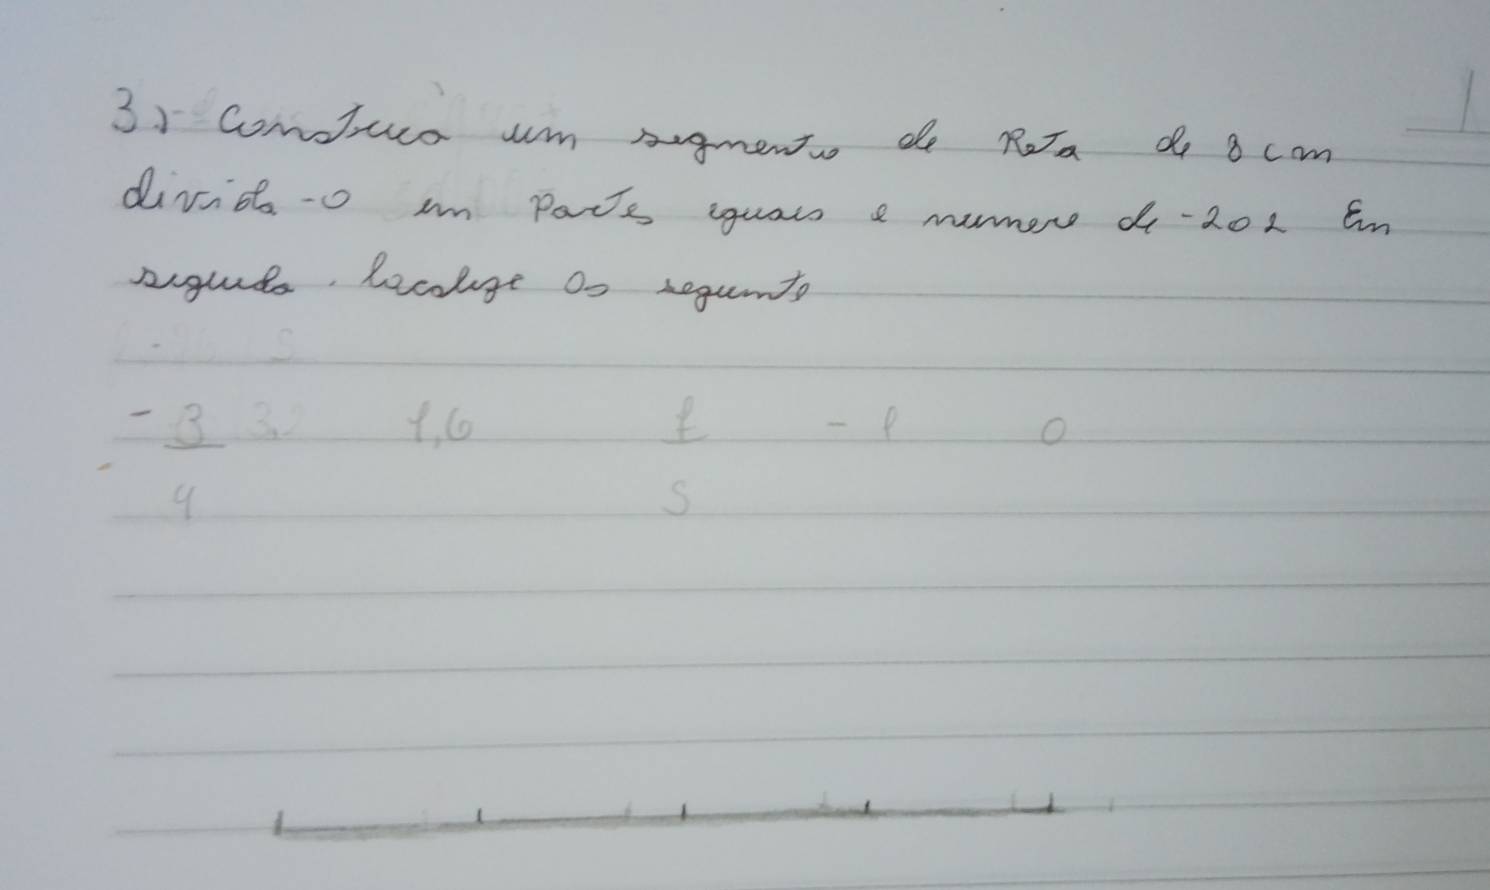 3)- Construa um segmento de Reta de 8 cm
divida-o em Partes iguais e numere de -2 0 2 Em
seguida. localize os segunte
- 3 1,6 1 - 1 0
4 5